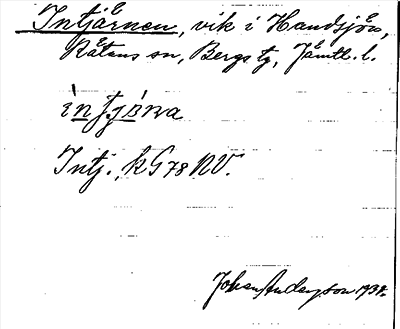 Intjärnen, vik i Handsjön,
Rätans sn, Bergs tg, Jämtl. l.
Intj., kG78 NV.
Johan Anderson 1934.